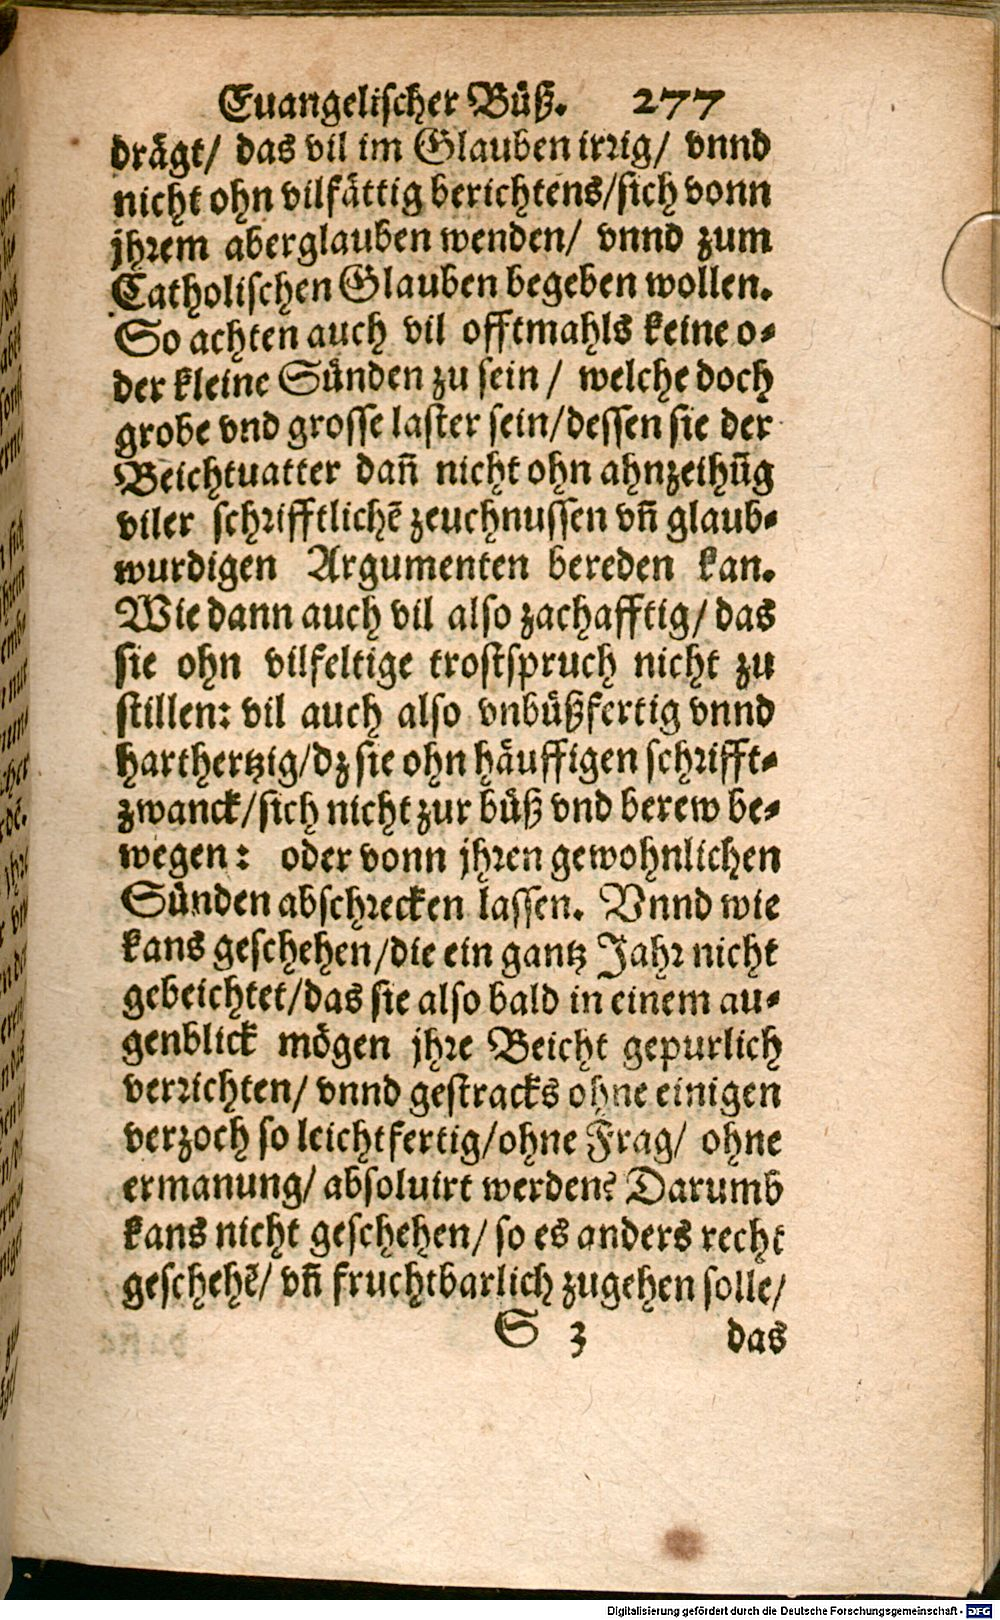 Euangelischer Büß. 277
drägt/ das vil im Glauben irrig/ vnnd
nicht ohn vilfättig berichtens/sich vonn
jhrem aberglauben wenden/ vnnd zum
Catholischen Glauben begeben wollen.
So achten auch vil offtmahls keine o-
der kleine Sünden zu sein / welche doch
grobe vnd grosse laster sein/dessen sie der
Beichtuatter dañ nicht ohn ahnzeihūg
viler schrifftlichē zeuchnussen vñ glaub-
wurdigen Argumenten bereden kan.
Wie dann auch vil also zachafftig/ das
sie ohn vilfeltige trostspruch nicht zu
stillen: vil auch also vnbüßfertig vnnd
harthertzig/dz sie ohn häuffigen schrifft-
zwanck/sich nicht zur büß vnd berew be-
wegen: oder vonn jhren gewohnlichen
Sünden abschrecken lassen. Vnnd wie
kans geschehen/die ein gantz Jahr nicht
gebeichtet/das sie also bald in einem au-
genblick mögen jhre Beicht gepurlich
verrichten/ vnnd gestracks ohne einigen
verzoch so leichtfertig/ohne Frag/ ohne
ermanung/ absoluirt werden? Darumb
kans nicht geschehen/ so es anders recht
geschehē/ vñ fruchtbarlich zugehen solle/
S 3 das
Digitalisierung gefördert durch die Deutsche Forschungsgemeinschaft - DFG